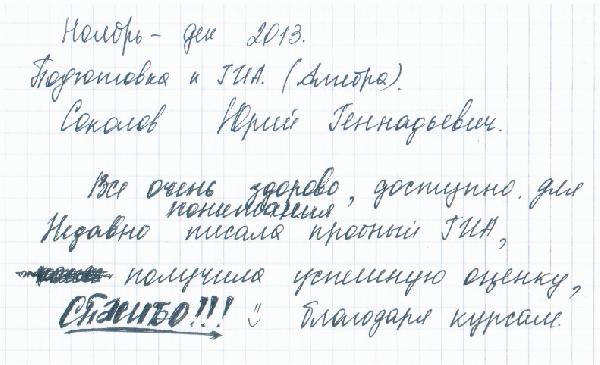 Ноябрь - дек 2013.
Подготовка к ГИА. (Алгебра).
Соколов Юрий Геннадьевич.
Все очень здорово, доступно для
понимания
Недавно писала пробный ГИА,
получила успешную оценку,
СПАСИБО!!! благодаря курсам.